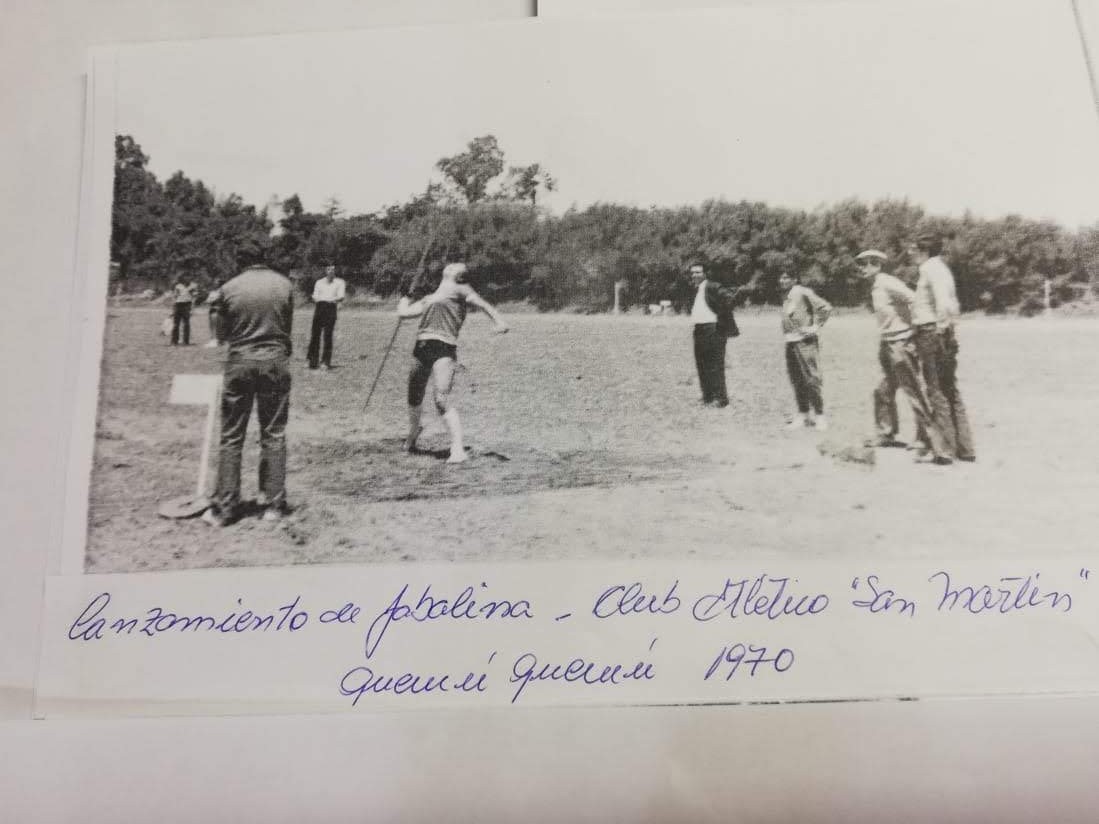 Lanzamiento de Jabalina - Club Atlético "San Martín"
Quemú Quemú 1970